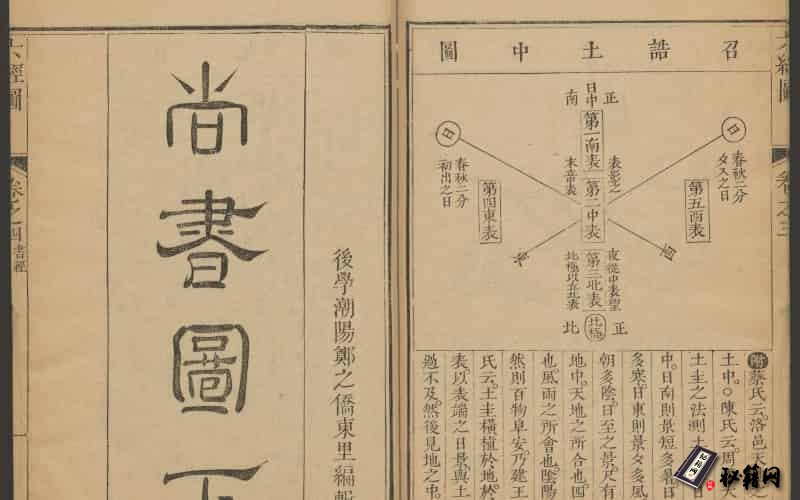 六經圖
卷之三
召誥土中圖
正南
日中
第一南表
表景之
第二中表
日
春秋二分
夕入之日
第五西表
日
春秋二分
初出之日
第四東表
夜從中表望
北極以立北表
第三北表
北極
正北
附蔡氏云洛邑天之
土中○陳氏云周
土圭之法測土
中日南則景短多暑日
多寒日東則景夕多風
朝多陰日至之景尺有
地中天地之所合也四
也風雨之所會也陰陽
然則百物阜安乃建王
氏云土圭橫植於地於
表以表端之日景與土
過不及然後見地之中
後學潮陽鄭之僑東里編輯
尚書圖下
六經圖
卷之四
書經
秘籍网